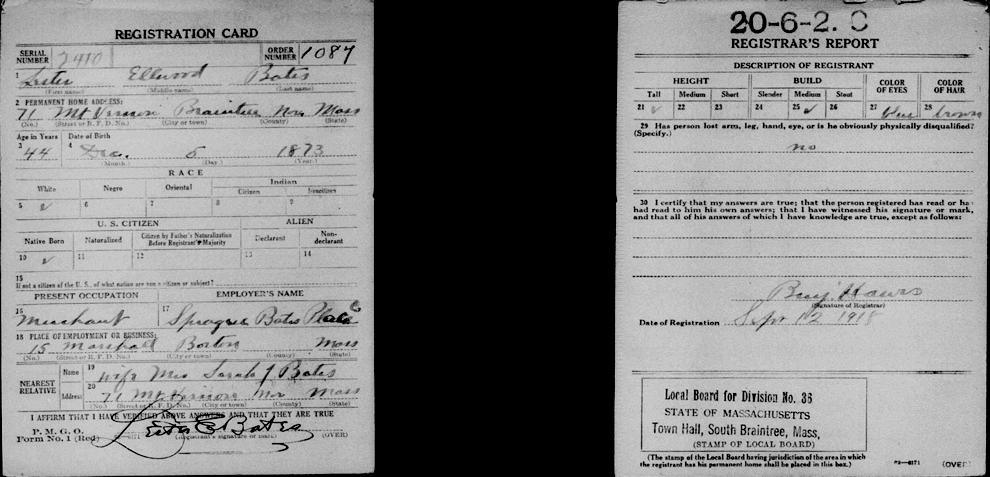 REGISTRATION CARD
SERIAL NUMBER 2410 ORDER NUMBER 1087
1 Lester Ellwood Bates
(First name) (Middle name) (Last name)
2 PERMANENT HOME ADDRESS:
71 Mt Vernon Braintree Nor Mass
(No.) (Street or R. F. D. No.) (City or town) (County) (State)
Age in Years Date of Birth
3 44 4 Dec. 5 1873
(Month.) (Day.) (Year.)
RACE
White Negro Oriental Indian
Citizen Noncitizen
5 ✓ 6 7 8 9
U. S. CITIZEN ALIEN
Native Born Naturalized Citizen by Father's Naturalization Before Registrant's Majority Declarant Non-declarant
10 ✓ 11 12 13 14
15
If not a citizen of the U. S., of what nation are you a citizen or subject?
PRESENT OCCUPATION EMPLOYER'S NAME
16 Merchant 17 Sprague Bates
18 PLACE OF EMPLOYMENT OR BUSINESS:
15 Marshall Boston Mass
(No.) (Street or R. F. D. No.) (City or town) (County) (State)
NEAREST RELATIVE
Name 19 Wife Mrs Sarah J Bates
Address 20 71 Mt Vernon Nor Mass
(No.) (Street or R. F. D. No.) (City or town) (County) (State)
I AFFIRM THAT I HAVE VERIFIED ABOVE ANSWERS AND THAT THEY ARE TRUE
P. M. G. O.
Form No. 1 (Red) Lester E Bates
(Registrant's signature or mark) (OVER)
20-6-2. C
REGISTRAR'S REPORT
DESCRIPTION OF REGISTRANT
HEIGHT BUILD COLOR OF EYES COLOR OF HAIR
Tall Medium Short Slender Medium Stout
21 ✓ 22 23 24 25 ✓ 26 27 blue 28 brown
29 Has person lost arm, leg, hand, eye, or is he obviously physically disqualified?
(Specify.)
no
30 I certify that my answers are true; that the person registered has read or ha
had read to him his own answers; that I have witnessed his signature or mark,
and that all of his answers of which I have knowledge are true, except as follows:
Benj. Hawes
(Signature of Registrar)
Date of Registration Sept 12 1918
Local Board for Division No. 36
STATE OF MASSACHUSETTS
Town Hall, South Braintree, Mass,
(STAMP OF LOCAL BOARD)
(The stamp of the Local Board having jurisdiction of the area in which
the registrant has his permanent home shall be placed in this box.)
(OVER)